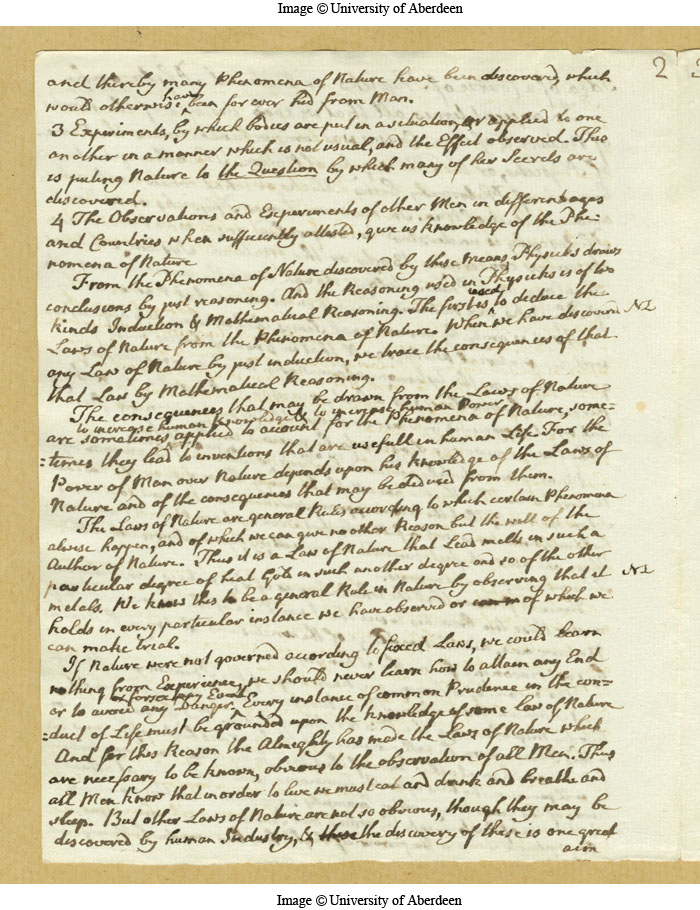 Image © University of Aberdeen
2
and thereby many Phenomena of Nature have been discovered, which
would otherwise have been for ever hid from Man.
3 Experiments, by which bodies are put in a situation, or applied to one
another in a manner which is not usual, and the Effect observed. This
is puting Nature to the Question by which many of her Secrets are
discovered.
4 The Observations and Experiments of other Men in different ages
and Countries when sufficiently attested, give us knowledge of the Phe-
nomena of Nature
From the Phenomena of Nature discovered by these means, Physicks draws
conclusions by just reasoning. And the Reasoning used in Physicks is of two
kinds Induction & Mathematical Reasoning. The first is used to deduce the
Laws of Nature from the Phenomena of Nature. When we have discovered
any Law of Nature by just induction, we trace the consequences of that
that Law by Mathematical Reasoning.
The consequences that may be drawn from the Laws of Nature
to increase human knowledge & to increase human Power
are sometimes applied to account for the Phenomena of Nature, some-
=times they lead to inventions that are usefull in human Life. For the
Power of Man over Nature depends upon his knowledge of the Laws of
Nature and of the consequences that may be deduced from them.
The Laws of Nature are general Rules according to which certain Phenomena
always happen, and of which we can give no other Reason but the will of the
Author of Nature. Thus it is a Law of Nature that Lead melts in such a
particular degree of heat Gold in such another degree and so of the other
metals. We know this to be a general Rule in Nature by observing that it
holds in every particular instance we have observed or of which we
can make trial.
If Nature were not governed according to fixed Laws, we could learn
nothing from Experience, we should never learn how to attain any End
or foresee any Event
or to avoid any Danger. Every instance of common Prudence in the con=
=duct of Life must be grounded upon the knowledge of some Law of Nature
And for this Reason the Almighty has made the Laws of Nature which
are necessary to be known, obvious to the observation of all Men. Thus
all Men know that in order to live we must eat and drink and breathe and
sleep. But other Laws of Nature are not so obvious, though they may be
discovered by human Industry, & the discovery of these is one great
aim
Image © University of Aberdeen